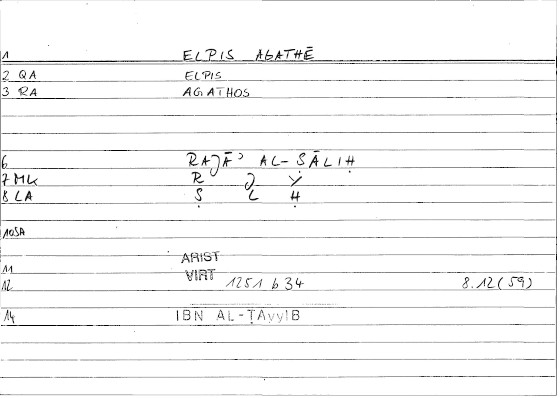 1 ELPIS AGATHĒ
2 QA ELPIS
3 RA AGATHOS
6 RAJĀʾ AL-ṢĀLIḤ
7 MK R J Y
8 LA Ṣ L Ḥ
10 SA
11 ARIST
VIRT
12 1251 b 34 8.12 (59)
14 IBN AL-ṬAyyIB